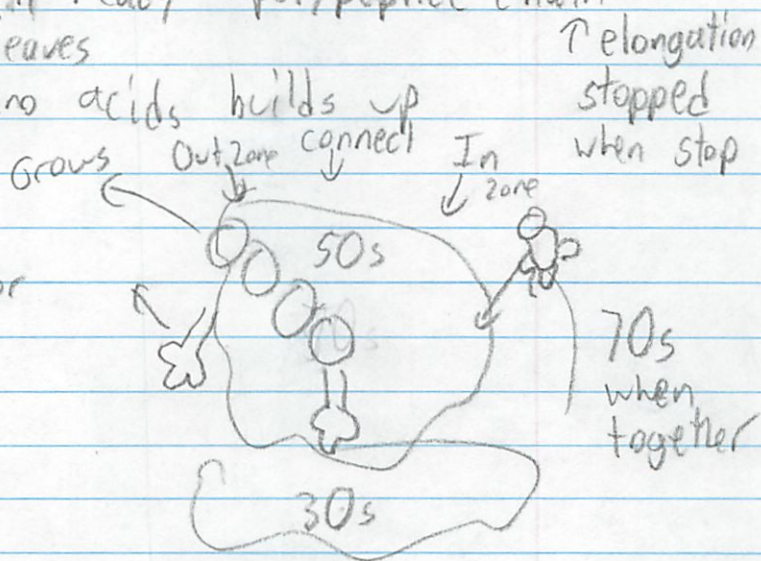 polypeptide chain
eaves
no acids builds up
↑ elongation
stopped
when stop
Grows
Out Zone
connect
In
zone
50s
70s
when
together
30s